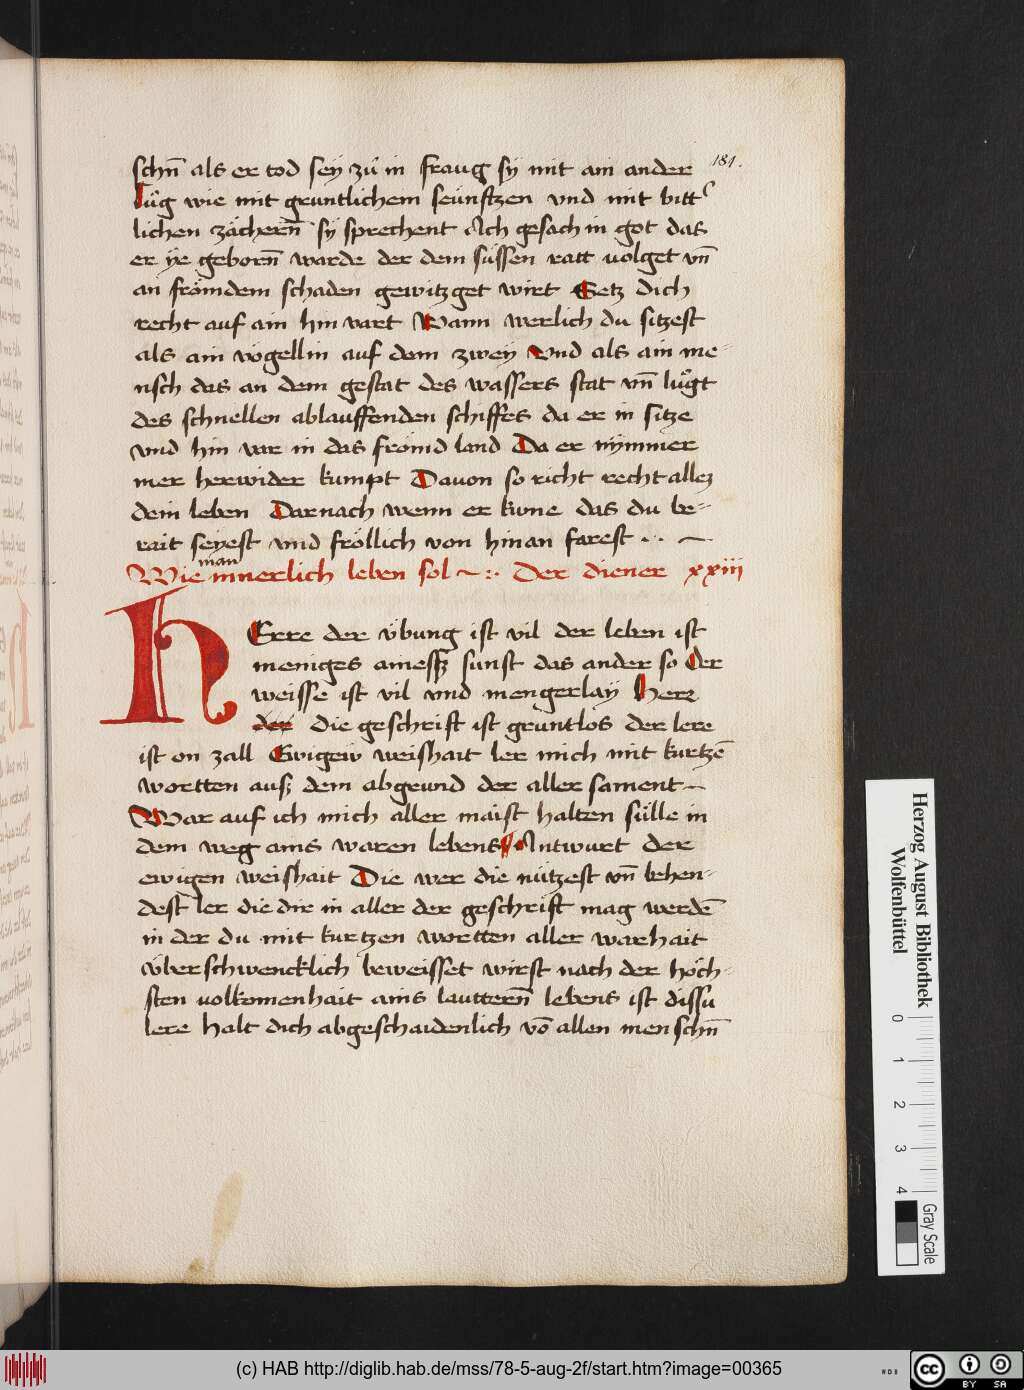 181.
schn̄ als er tod seÿ zů in fraug sÿ mit ain ander
lůg wie mit gruntlichem seúnftzen vnd mit bitt
lichen zächern̄ sÿ sprechent Ach gesach in got das
er ÿe geborn̄ warde der dem süssen ratt uolget vn̄
an frömdem schaden gewitzget wirt Setz dich
recht auf ain hin vart Wann werlich du sitzest
als ain vögellin auf dem zweÿ Vnd als ain me-
nsch das an dem gestat des wassers stat vn̄ lůgt
des schnellen ablauffenden schiffes da er in sitze
vnd hin var in das frömd land Da er nÿmmer
mer herwider kumpt Dauon so richt recht allez
dein leben Darnach wenn er kume das du be-
rait seyest vnd fröllich von hinan farest
Wie man innerlich leben sol Der diener xxiij
HErre der übung ist vil der leben ist
meniges ainess sunst das ander so Der
weisse ist vil vnd mengerlaÿ Herr
der die geschrift ist gruntlos der lere
ist on zall Ewigew weishait ler mich mit kurtzē
wortten auss dem abgrund der aller sament
War auf ich mich aller maist halten sülle in
dem weg ains waren lebens Antwurt der
ewigen weishait Die wer die nützest vn̄ behen-
dest ler die dir in aller der geschrift mag werdē
in der du mit kurtzen wortten aller warhait
überschwencklich beweisset wirst nach der höch-
sten uolkomenhait ains lauttern̄ lebens ist dissu
lere halt dich abgeschaidenlich vō allen menschn̄
Herzog August Bibliothek
Wolfenbüttel
0 1 2 3 4
Gray Scale
(c) HAB http://diglib.hab.de/mss/78-5-aug-2f/start.htm?image=00365
WDB
cc BY SA